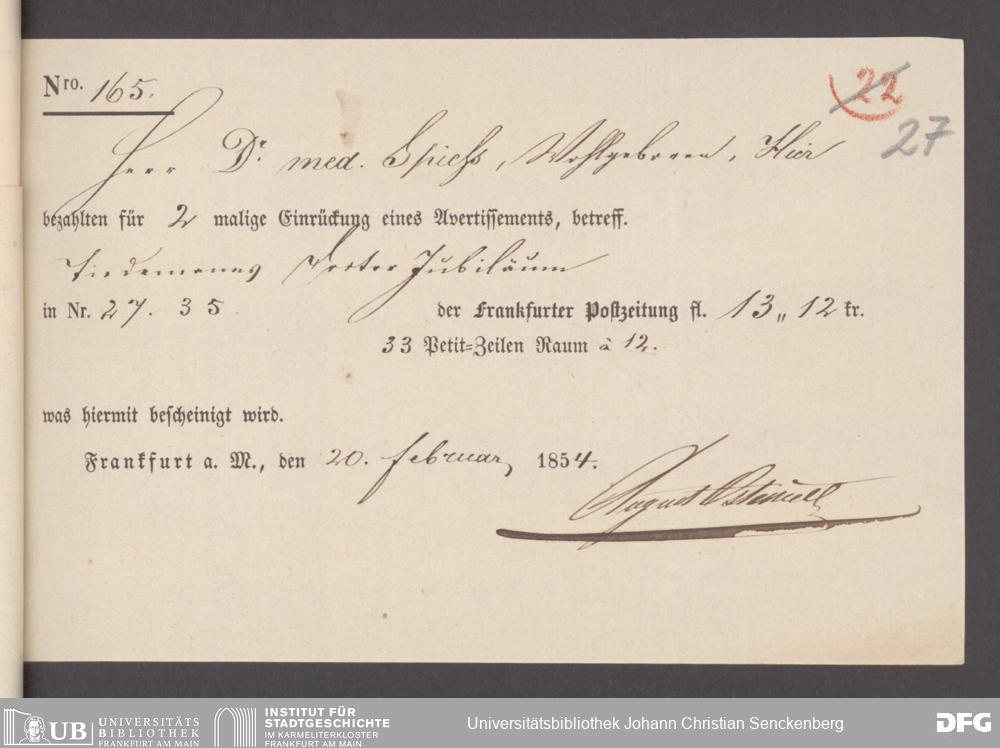 Nro. 165.
22
27
Herr Dr. med. Spiess, Wohlgeboren, Hier
bezahlten für 2 malige Einrückung eines Avertissements, betreff.
Tiedemanns Doctor Jubiläum
in Nr. 27. 35. der Frankfurter Postzeitung fl. 13 „ 12 kr.
33 Petit=Zeilen Raum à 12.
was hiermit bescheinigt wird.
Frankfurt a. M., den 20. Februar 1854.
August Osterrieth
UB UNIVERSITÄTS
BIBLIOTHEK
FRANKFURT AM MAIN
INSTITUT FÜR
STADTGESCHICHTE
IM KARMELITERKLOSTER
FRANKFURT AM MAIN
Universitätsbibliothek Johann Christian Senckenberg
DFG